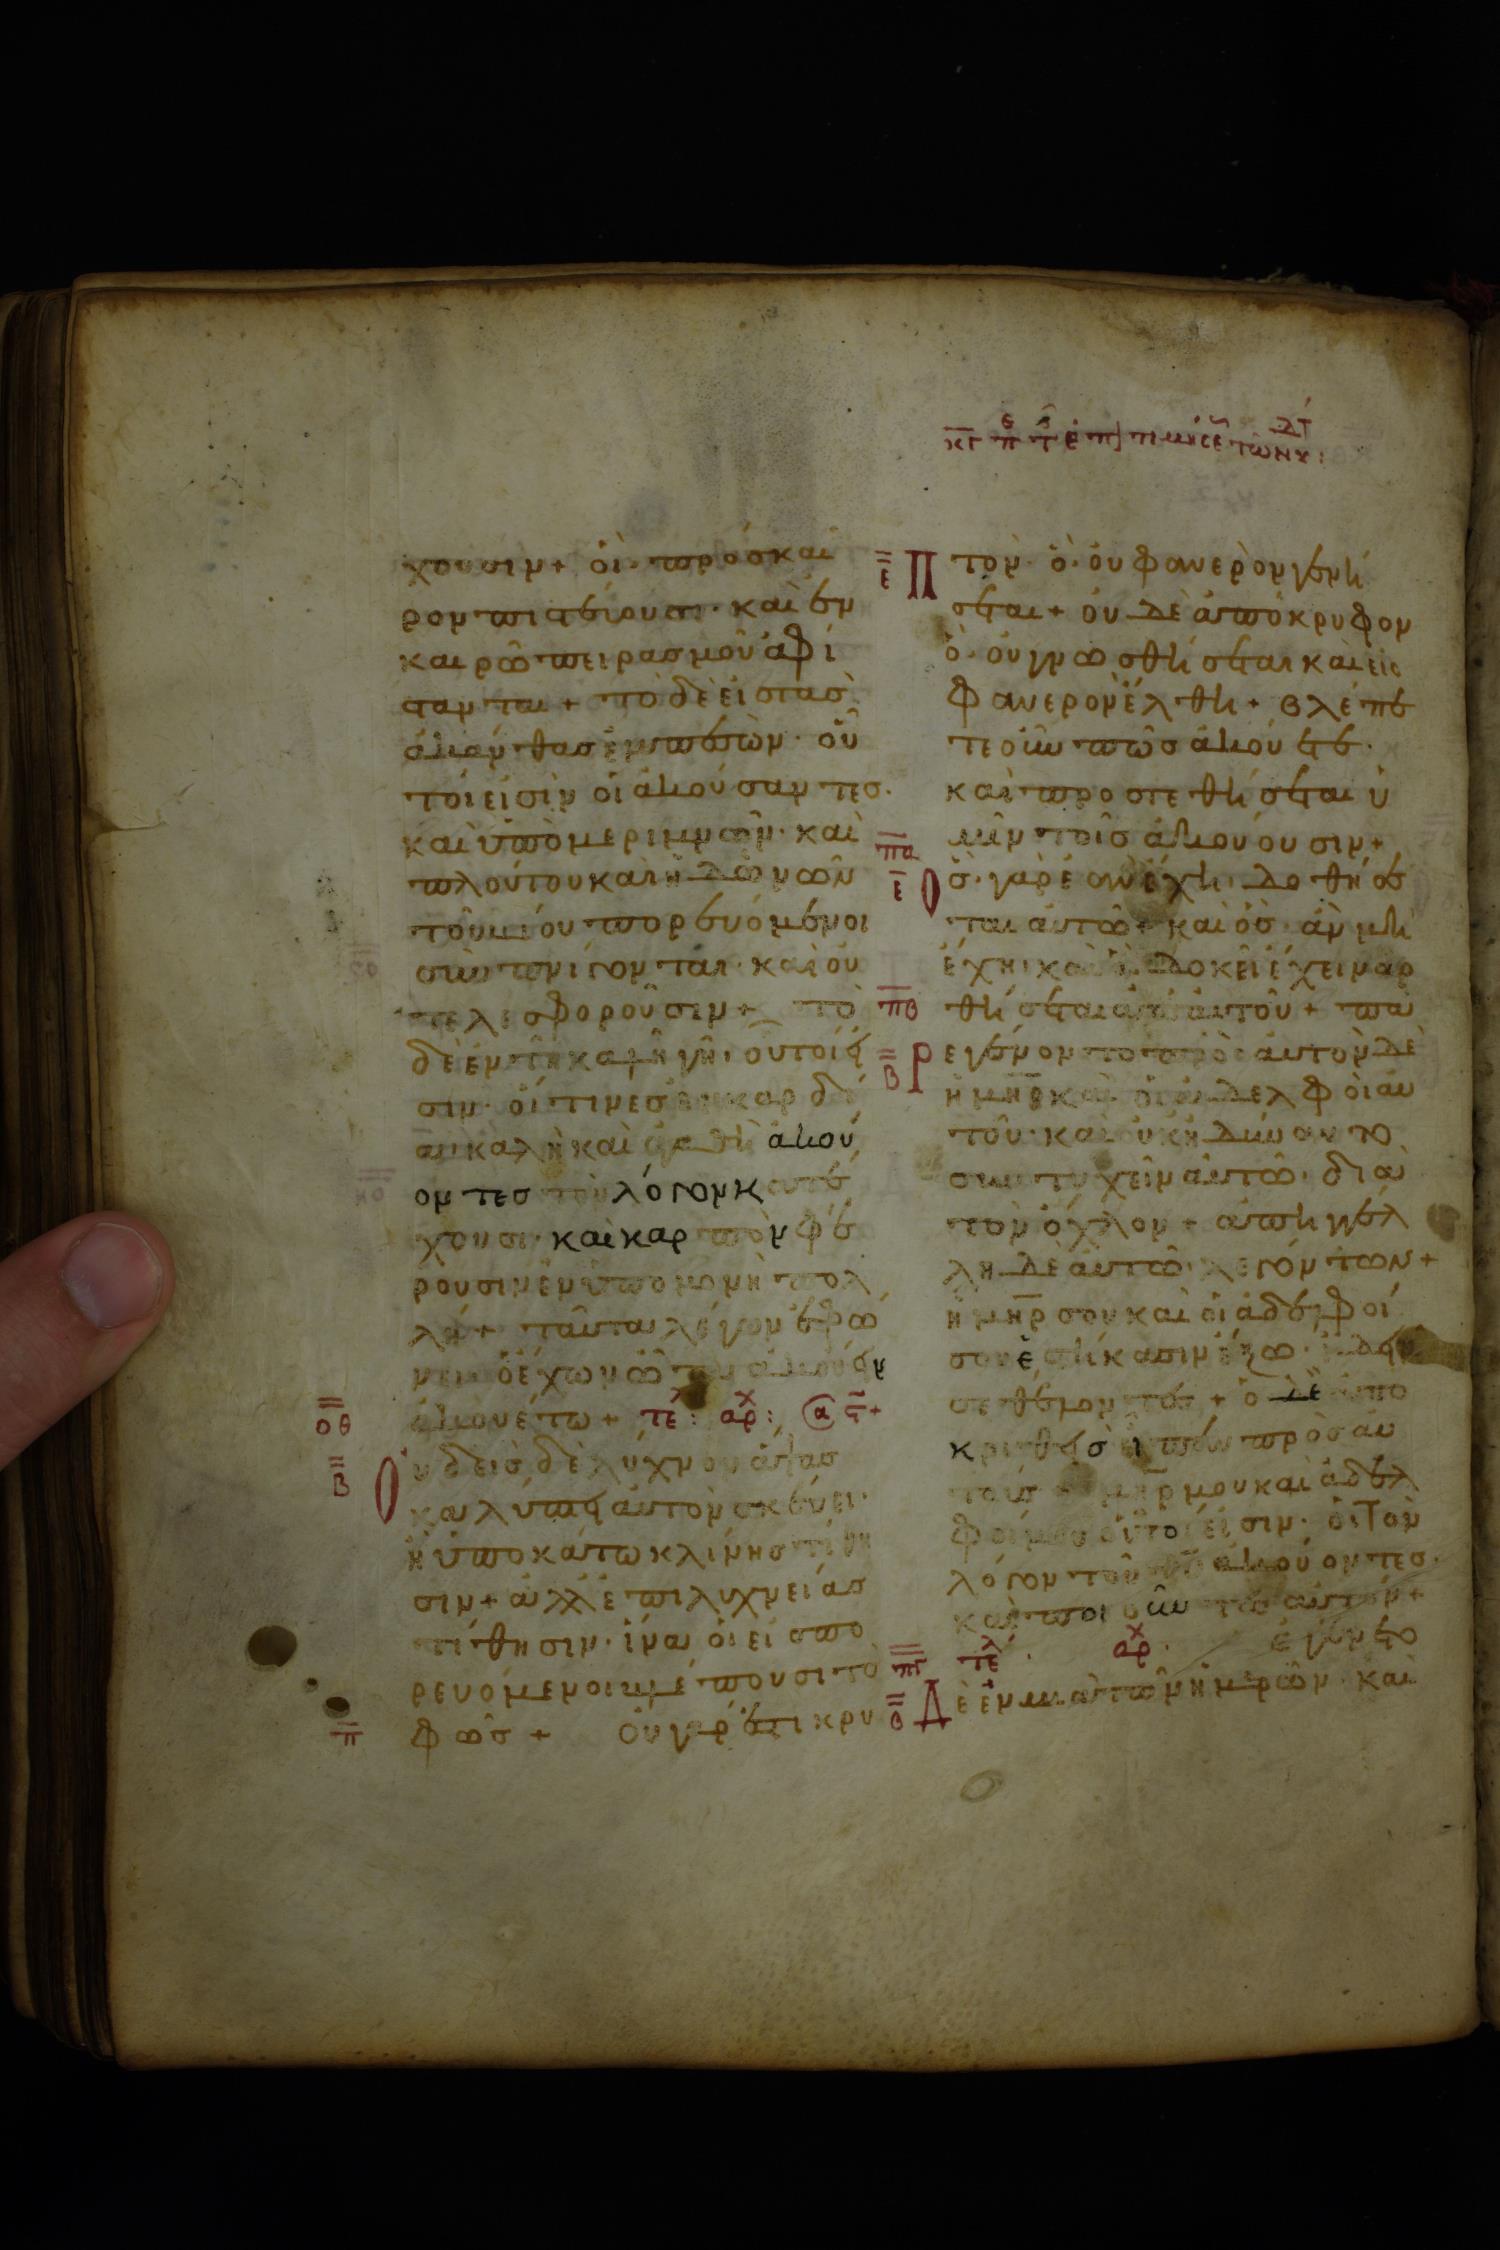 χουσιν+ οἱ· πρόσκαι
ρον πιστεύουσι· καὶ ἐν
καιρῶ πειρασμοῦ ἀφί
στανται + τὸ δὲ εἰς τὰσ
ἀκάνθασ ἐμπεσὼν· οὗ
τοί εἰσὶν οἱ ἀκούσαντεσ.
καὶ ὑπὸ μεριμνῶν· καὶ
πλούτου καὶ ἡδωνῶν
τοῦ βίου πορευόμενοι
συμπνίγονται· καὶ οὐ
τελεσφοροῦσιν + τὸ
δὲ ἐν τῆ καλῆ γῆ· οὗτοί εἰ
σιν· οἵτινεσ ἐν καρδί
αι καλῆ καὶ ἀγαθῆ ἀκού
οντεσ τὸν λόγον κατέ
χουσι· καὶ καρπὸν φέ
ρουσιν ἐν ὑπομονῆ πολ
λῆ + ταῦτα λέγων ἐφώ
νει· ὁ ἔχων ὦτα ἀκούειν
οθ ἀκουέτω + τε: αρχ: α
β Οὐδεὶσ δὲ λύχνον ἅψασ
καλύπτει αὐτὸν σκεύει·
ἢ ὑποκάτω κλίνησ τίθη
σιν + ἀλλ' ἐπὶ λυχνείασ
τίθησιν· ἵνα οἱ εἰσπο
ρευόμενοι βλέπουσι τὸ
π φῶσ + Οὐ γάρ ἐστι κρυ
ε Π τὸν· ὃ· οὐ φανερὸν γενή
σεται + οὐδὲ ἀπόκρυφον
ὃ· οὐ γνωσθήσεται καὶ εἰς
φανερὸν ἔλθη + βλέπε
τε οὖν πῶσ ἀκούετε·
καὶ προστεθήσεται ὑ
μῖν τοῖσ ἀκούουσιν +
πα ε Ὃσ· γὰρ ἐὰν ἔχη· δοθήσε
ται αὐτῶ + καὶ ὃσ· ἂν μὴ
ἔχη· καὶ ὃ δοκεῖ ἔχειν ἀρ
πβ θήσεται ἀπ' αὐτοῦ + πα
β Ρ εγένοντο πρὸς αὐτὸν δὲ
ἡ μηρ καὶ οἱ ἀδελφοὶ αὐ
τοῦ· καὶ οὐκ ἠδύναντο
συντυχεῖν αὐτῶ· διὰ
τὸν ὄχλον + ἀπηγγέλ
λη δὲ αὐτῶ· λεγόντων +
ἡ μηρ σου καὶ οἱ ἀδελφοί
σου ἑστήκασιν ἔξω· ἰδεῖν
σε θέλοντές + ὁ δὲ ἀπο
κριθεὶσ εἶπεν πρὸσ αὐ
τούσ μηρ μου καὶ ἀδελ
φοί μου οὗτοί εἰσιν· οἱ τὸν
λόγον τοῦ θυ ἀκούοντεσ·
καὶ ποιοῦντεσ αὐτόν +
πγ τελ· αρχ· ἐγένετο
β Δ ὲ ἐν μιᾶ τῶν ἡμερῶν· καὶ